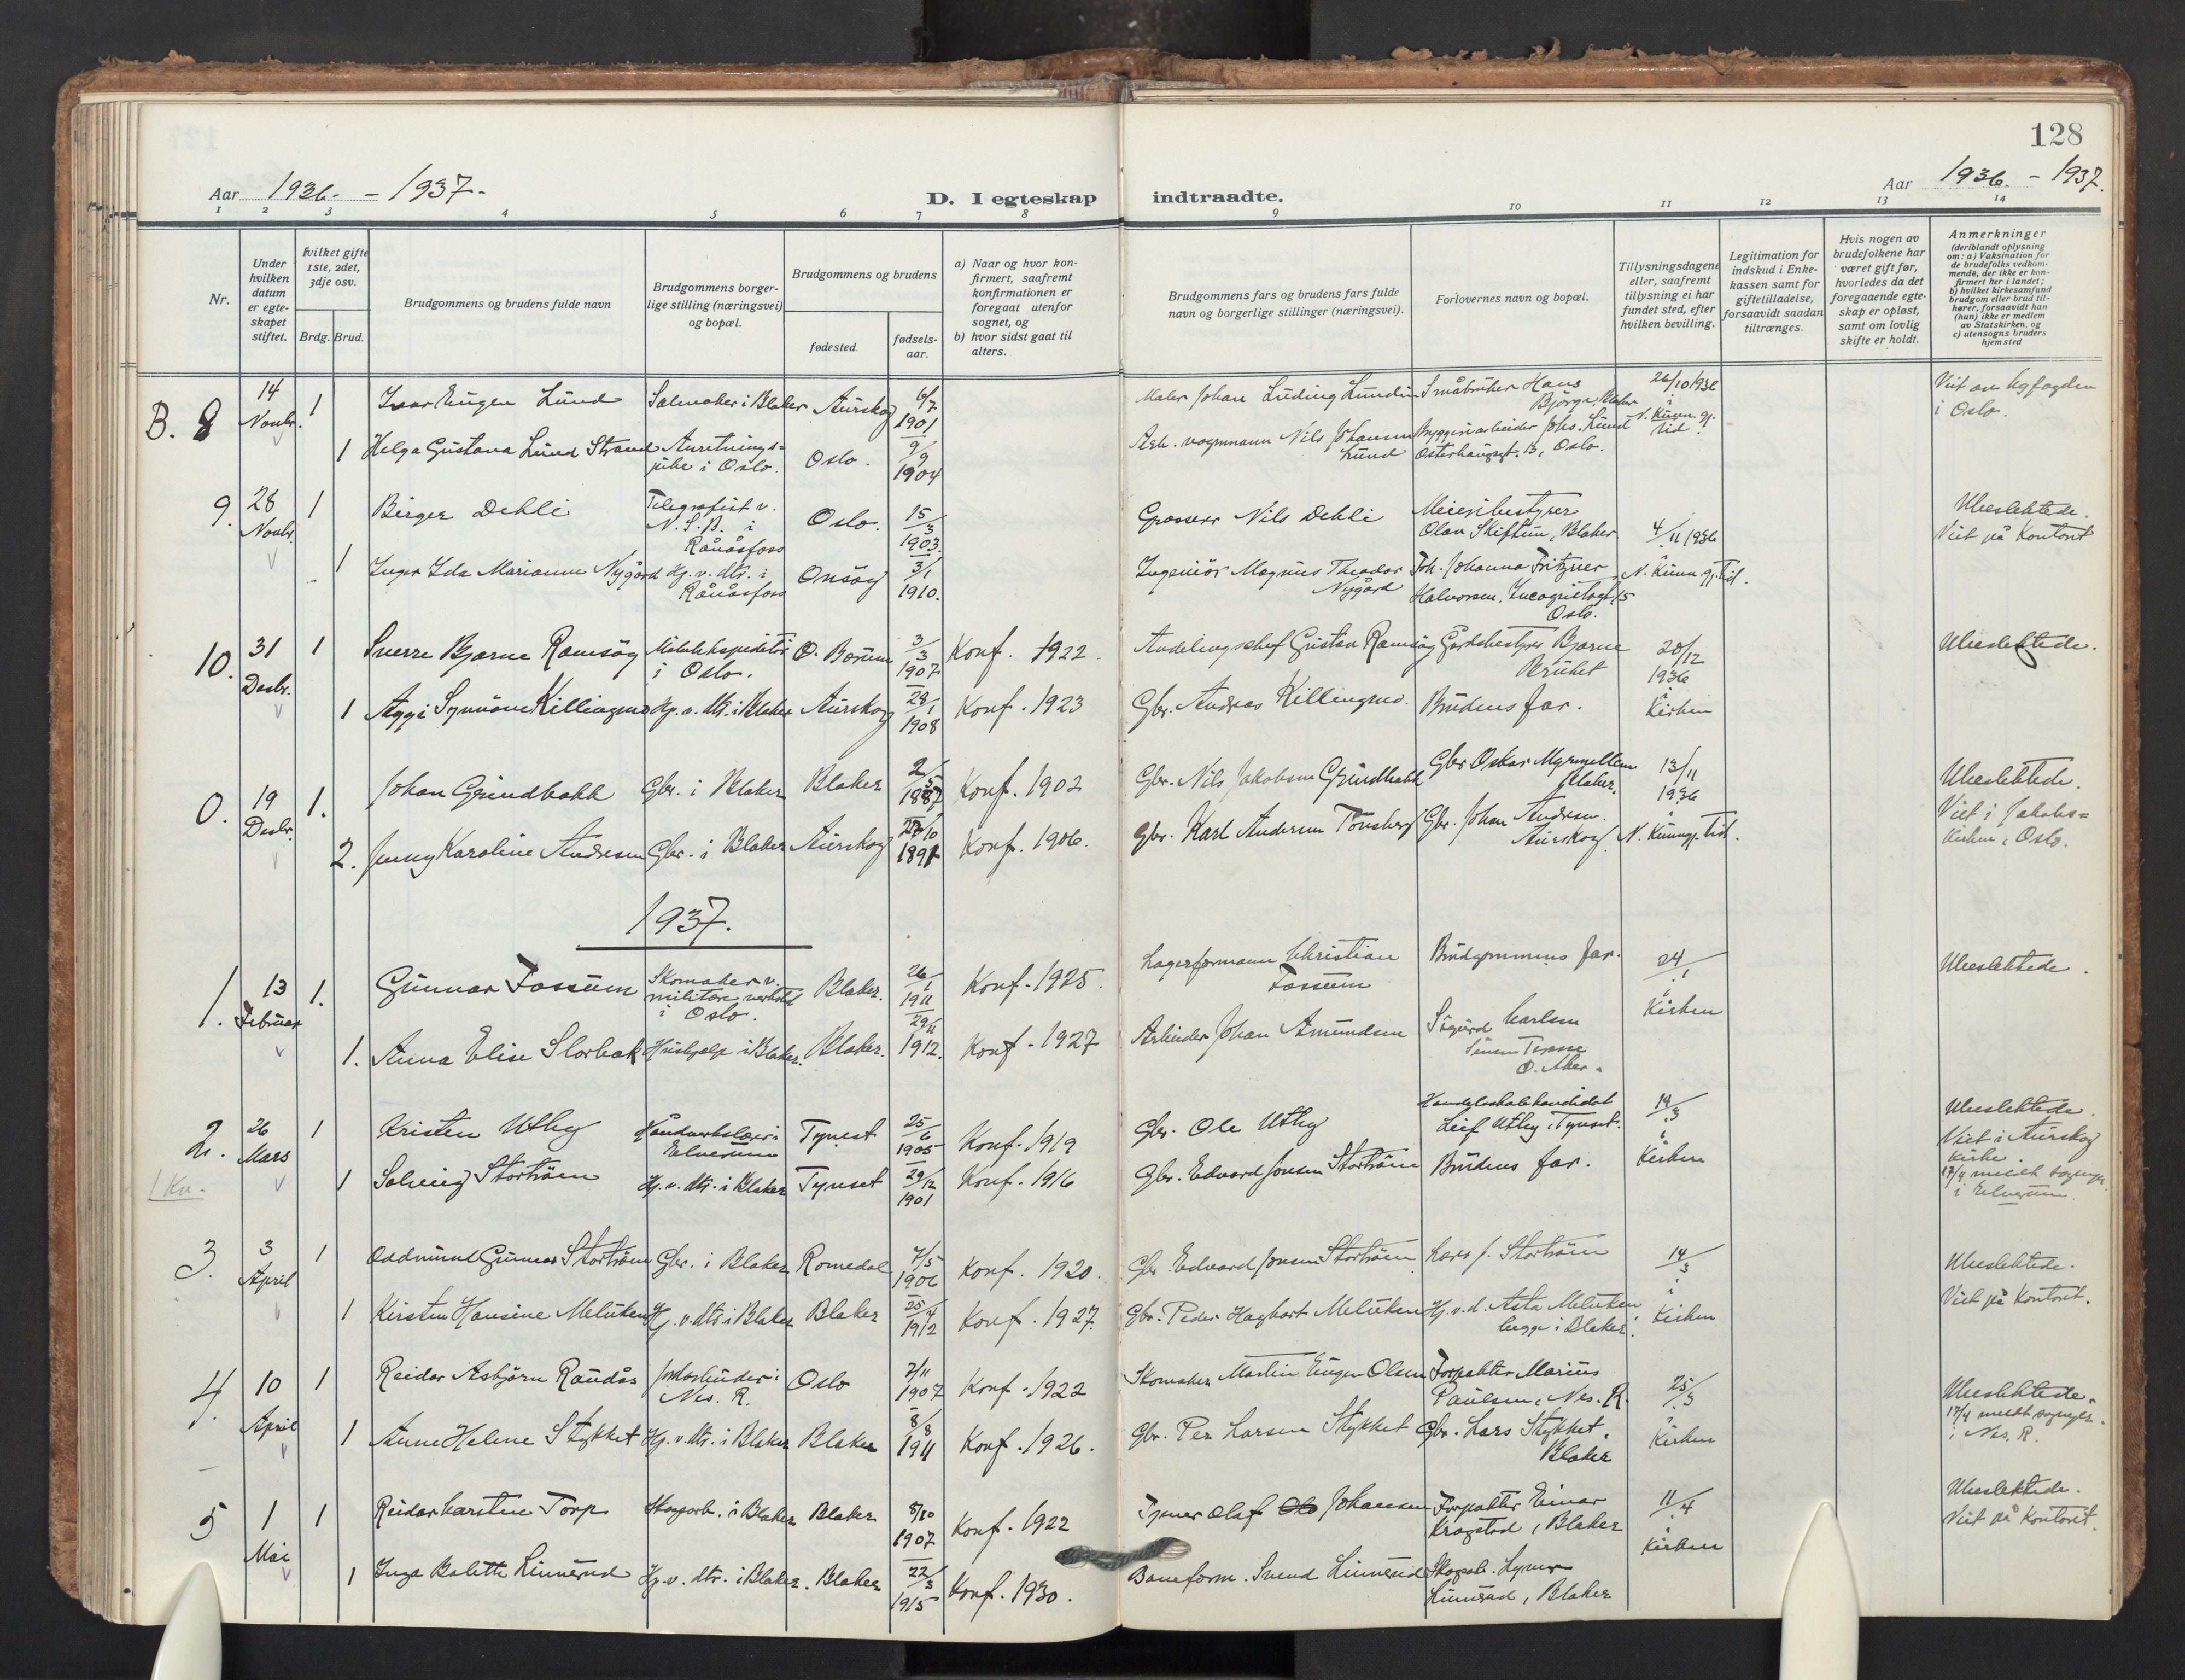 128
Aar 1936. - 1937.
D. I egteskap indtraadte.
Aar 1936. - 1937.
1 2 3 4 5 6 7 8 9 10 11 12 13 14
Nr.
Under
hvilken
datum
er egte-
skapet
stiftet.
hvilket gifte
1ste, 2det,
3dje osv.
Brdg. Brud.
Brudgommens og brudens fulde navn
Brudgommens borger-
lige stilling (næringsvei)
og bopæl.
Brudgommens og brudens
fødested.
fødsels-
aar.
a) Naar og hvor kon-
firmert, saafremt
konfirmationen er
foregaat utenfor
sognet, og
b) hvor sidst gaat til
alters.
Brudgommens fars og brudens fars fulde
navn og borgerlige stillinger (næringsvei).
Forlovernes navn og bopæl.
Tillysningsdagene
eller, saafremt
tillysning ei har
fundet sted, efter
hvilken bevilling.
Legitimation for
indskud i Enke-
kassen samt for
giftetilladelse,
forsaavidt saadan
tiltrænges.
Hvis nogen av
brudefolkene har
været gift før,
hvorledes da det
foregaaende egte-
skap er opløst,
samt om lovlig
skifte er holdt.
Anmerkninger
(deriblandt oplysning
om: a) Vaksination for
de brudefolks vedkom-
mende, der ikke er kon-
firmert her i landet;
b) hvilket kirkesamfund
brudgom eller brud til-
hører, forsaavidt han
(hun) ikke er medlem
av Statskirken, og
c) utensogns bruders
hjemsted
B. 8 14 Novbr. 1 Ivar Eugen Lund Salmaker i Blaker Aurskog 6/7 1901 Maler Johan Luding Lundin Småbruker Hans Bjørge, Blaker 26/10 1936 i N. Kunn. gj. tid. Viet av byfogden i Oslo.
1 Helga Gustava Lund Strand Anretnings= pike i Oslo. Oslo. 9/9 1904 Arb. vognmann Nils Johansen Lund Bryggeriarbeider Johs. Lund Osterhausgt. 13, Oslo.
9. 28 Novbr. 1 Birger Dehli Telegrafist v. N.S.B. i Rånåsfoss Oslo. 15/3 1903. Grosserer Nils Dehli Meieribestyrer Olav Skiftun, Blaker 4/11 1936 i N. Kunn. gj. Tid. Ubeslektede. Viet på Kontoret
1 Inger Ida Marianne Nygård Hj. v. dtr. i Rånåsfoss Onsøy 3/1 1910. Ingeniør Magnus Theodor Nygård Frk. Johanna Fritzner Halvorsen. Incognitogt. 15 Oslo.
10. 31 Desbr. 1 Sverre Bjarne Ramsøy i Oslo. Ø. Bærum 3/3 1907 Konf. 1922. Avdelingschef Gustav Ramsøy Gårdsbestyrer Bjarne Bruket 20/12 1936 i Kirken Ubeslektede.
1 Aggi Synnøve Killingmo Hj. v. dtr. i Blaker Aurskog 28/1 1908 Konf. 1923 Gbr. Andreas Killingmo. Brudens far.
0. 19 Desbr. 1. Johan Grindbakk Gbr. i Blaker Blaker 2/5 1887 Konf. 1902 Gbr. Nils Jakobsen Grindbakk Gbr Oskar Myrmellem Blaker. 13/11 1936 i N. Kunngj. Tid. Ubeslektede. Viet i Jakobs= kirken, Oslo.
2. Jenny Karoline Andresen Gbr. i Blaker Aurskog 1891 Konf. 1906. Gbr. Karl Andersen Tønsberg Gbr. Johan Andresen. Aurskog.
1937.
1. 13 Februar 1. Gunnar Fossum Skomaker v. militære verksted i Oslo. Blaker. 26/1 1911 Konf. 1925. Lagerformann Christian Fossum Brudgommens far. 24/1 i Kirken Ubeslektede.
1. Anna Elise Slorbak Hushjelp i Blaker. Blaker. 29/11 1912. Konf. 1927 Arbeider Johan Amundsen Sigurd Carlsen Sinsen Terasse Ø. Aker.
2. 26 Mars 1 Kristen Utby Håndverkslærer i Elverum Tynset 25/6 1905 Konf. 1919 Gbr. Ole Utby Handelsskolekandidat Leif Utby, Tynset. 14/3 i Kirken Ubeslektede. Viet i Aurskog kirke. 17/4 meldt sogнepr. i Elverum.
1 Kv. 1 Solveig Stortrøen Hj. v. dtr. i Blaker Tynset 29/12 1901 Konf. 1916 Gbr. Edvard Jonsen Stortrøen Brudens far.
3. 3 April 1 Oddmund Gunnar Stortrøen Gbr. i Blaker Romedal 7/5 1906 Konf. 1920. Gbr. Edvard Jonsen Stortrøen Lars J. Stortrøen 14/3 i Kirken Ubeslektede. Viet på Kontoret.
1 Kirsten Hansine Melnken Hj. v. dtr i Blaker Blaker 25/4 1912 Konf. 1927. Gbr. Peder Hagbart Melnken Hj. v. d. Asta Melnken begge i Blaker.
4. 10 April 1 Reidar Asbjørn Raudås Jordarbeider i Nes. R. Oslo 2/11 1907 Konf. 1922 Skomaker Martin Eugen Olsen Forpakter Marius Paulsen, Nes. R. 25/3 i Kirken Ubeslektede. 17/4 meldt sognepr. i Nes. R.
1 Anne Helene Stykket Hj. v. dtr. i Blaker Blaker 8/8 1911 Konf. 1926. Gbr. Per Larsen Stykket Gbr. Lars Stykket. Blaker
5 1 Mai 1 Reidar Carsten Torp Skogsarb. i Blaker Blaker 8/10 1907 Konf. 1922 Olaf Johansen Forpakter Einar Kragstad, Blaker 11/4 i Kirken Ubeslektede. Viet på Kontoret.
1 Inga Bolette Linnerud Hj. v. dtr. i Blaker. Blaker 22/3 1915 Konf. 1930. Baneform. Svend Linnerud Skogsarb. Linnerud, Blaker